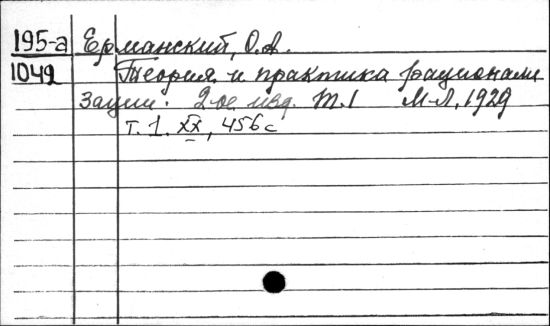 195-а Ерманский, О.А.
1042 Теория и практика рационали
зации. 2-ое изд. Т.1 М-Л, 1929
т. 1. XX, 456 с